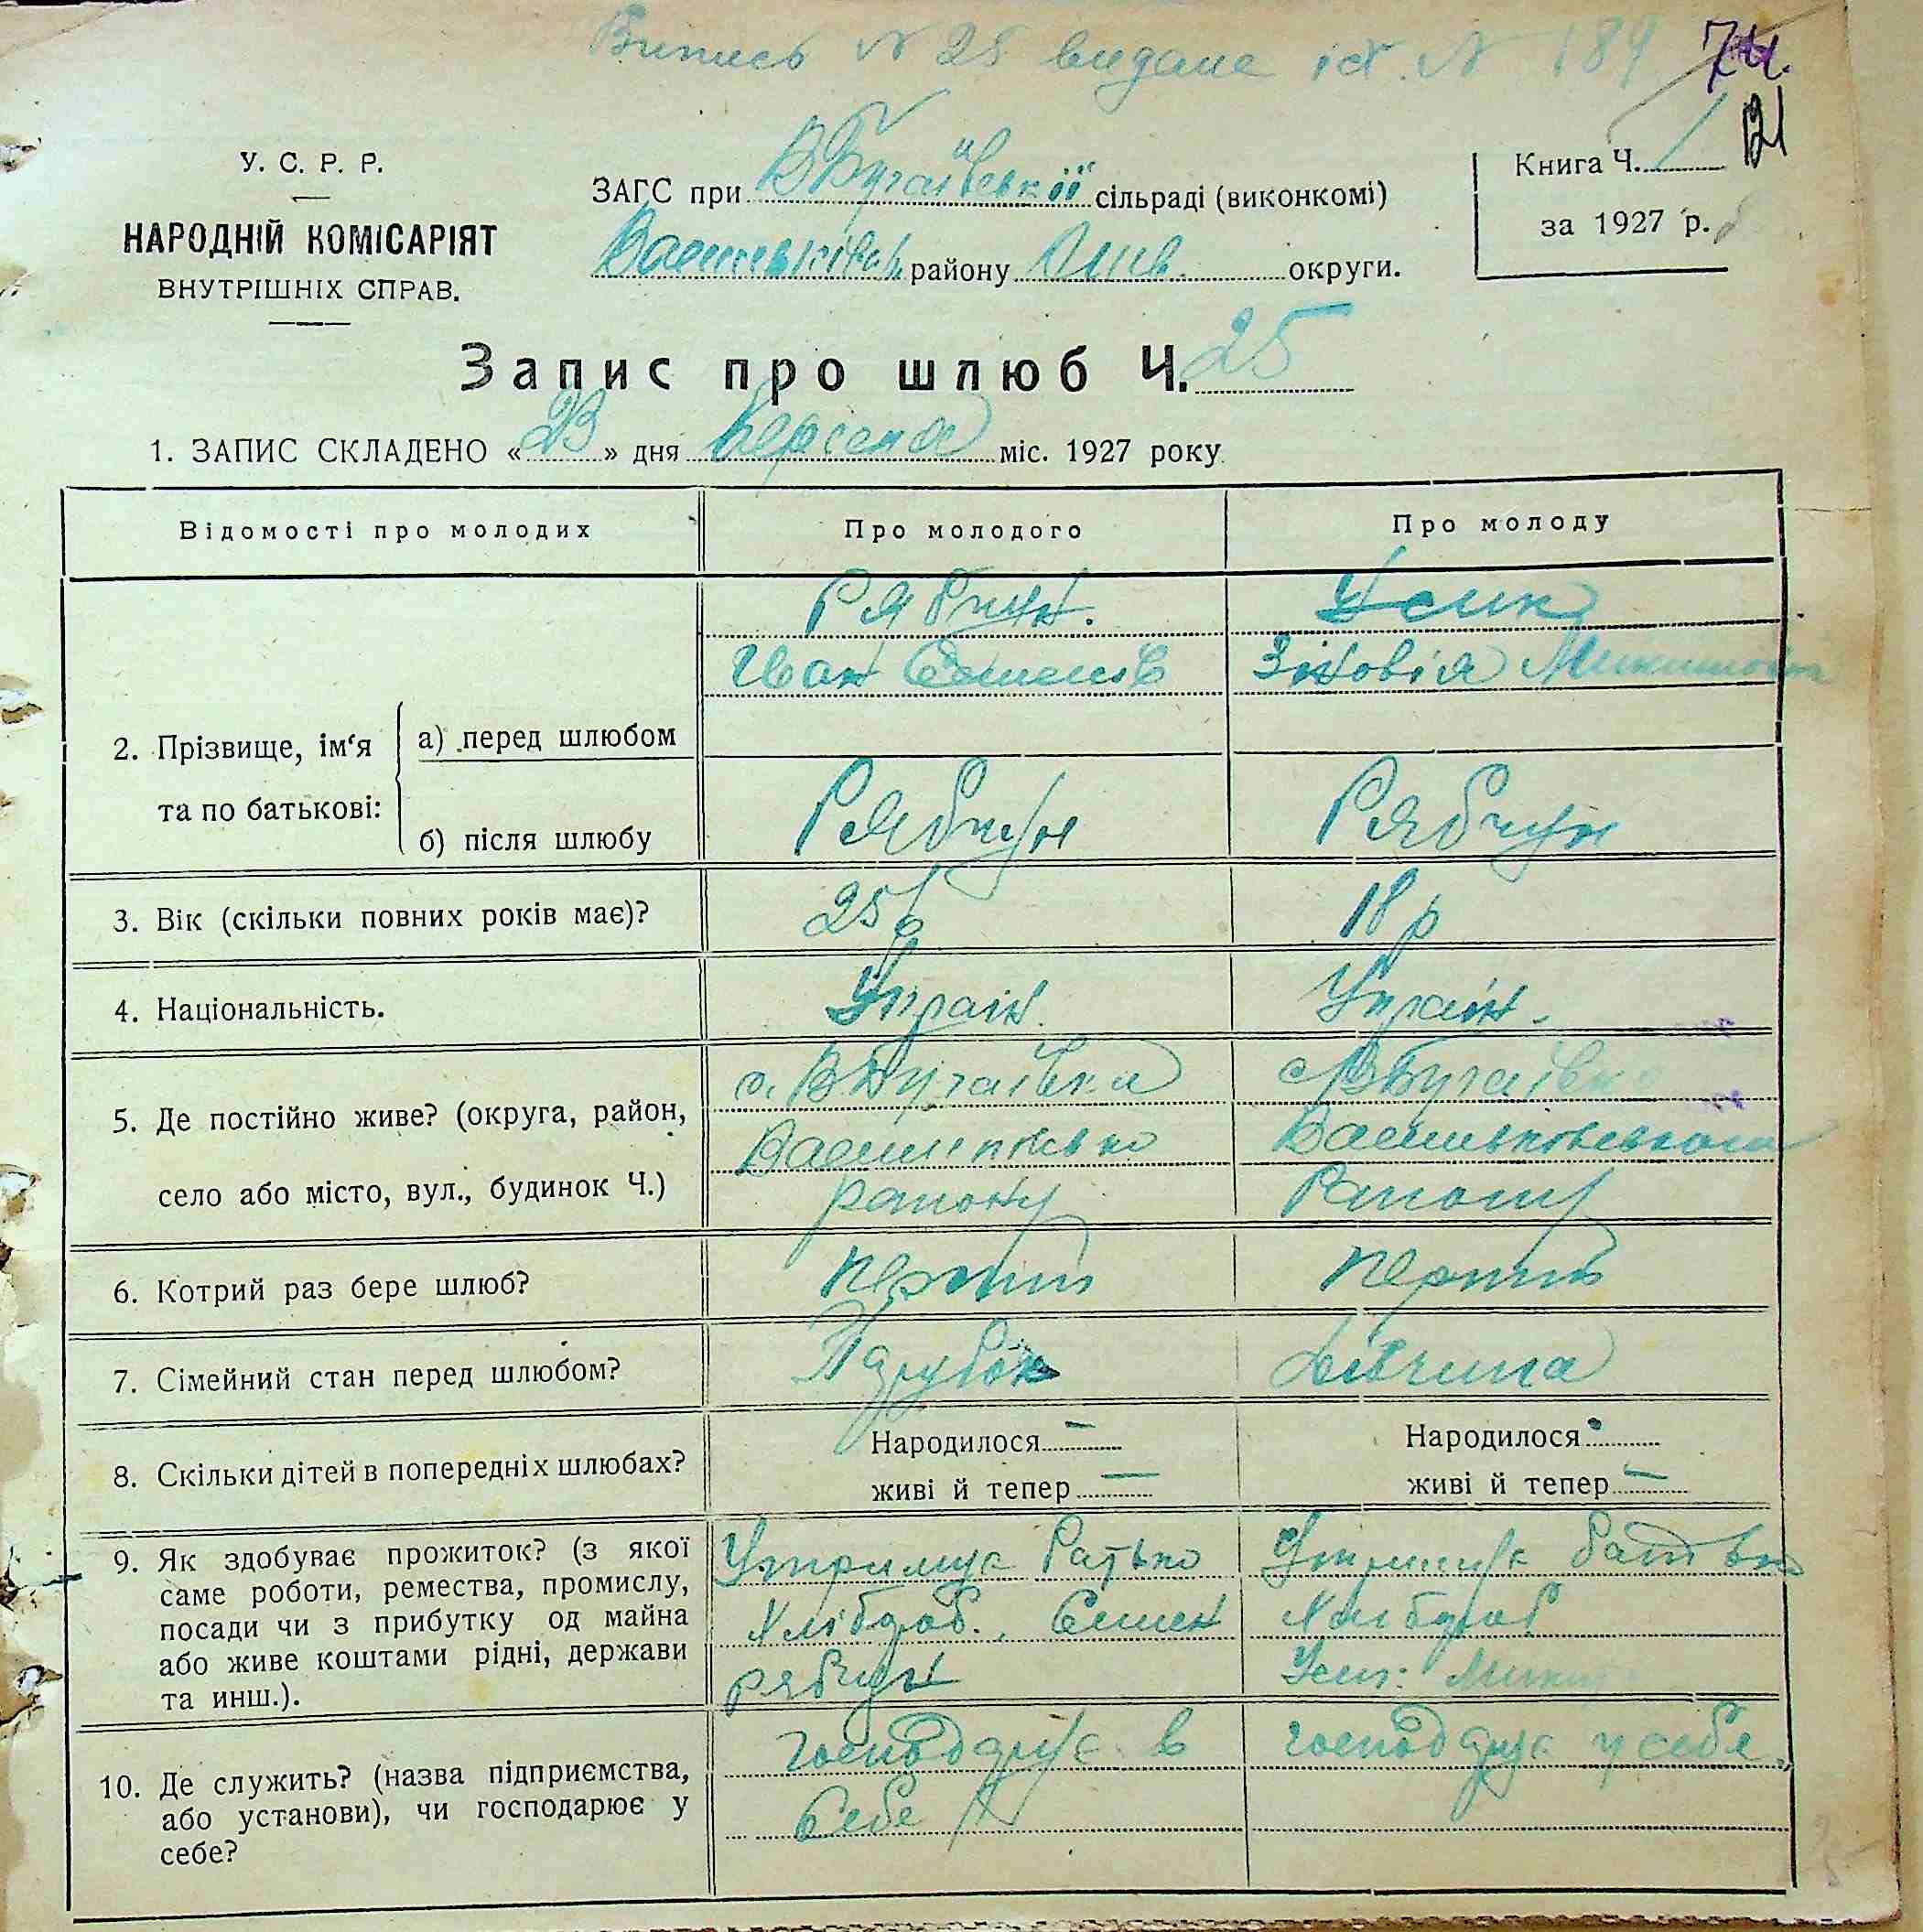 Випись N 25 видана N 189 74.
У. С. Р. Р.
НАРОДНІЙ КОМІСАРІЯТ
ВНУТРІШНІХ СПРАВ.
ЗАГС при В Бугаївській сільраді (виконкомі)
району округи.
Книга Ч. 1
за 1927 р.
Запис про шлюб Ч. 25
1. ЗАПИС СКЛАДЕНО « 23 » дня Вересня міс. 1927 року
Відомості про молодих
Про молодого
Про молоду
2. Прізвище, ім'я та по батькові:
а) перед шлюбом
Рябчун.
Іван Семенів
Усик
Зіновія
б) після шлюбу
Рябчун
Рябчун
3. Вік (скільки повних років має)?
25 р
18 р
4. Національність.
Україн.
Україн.
5. Де постійно живе? (округа, район,
село або місто, вул., будинок Ч.)
с. В Бугаївка
Району
с В Бугаївка
Васильковського
Району
6. Котрий раз бере шлюб?
Перший
Перший
7. Сімейний стан перед шлюбом?
Парубок
Дівчина
8. Скільки дітей в попередніх шлюбах?
Народилося —
живі й тепер —
Народилося
живі й тепер —
9. Як здобуває прожиток? (з якої
саме роботи, ремества, промислу,
посади чи з прибутку од майна
або живе коштами рідні, держави
та инш.).
Утримує Батько
Хлібороб. Семен
Рябчун
Утримує батько
Хлібороб
10. Де служить? (назва підприємства,
або установи), чи господарює у
себе?
господарує в
себе
господарує у себе